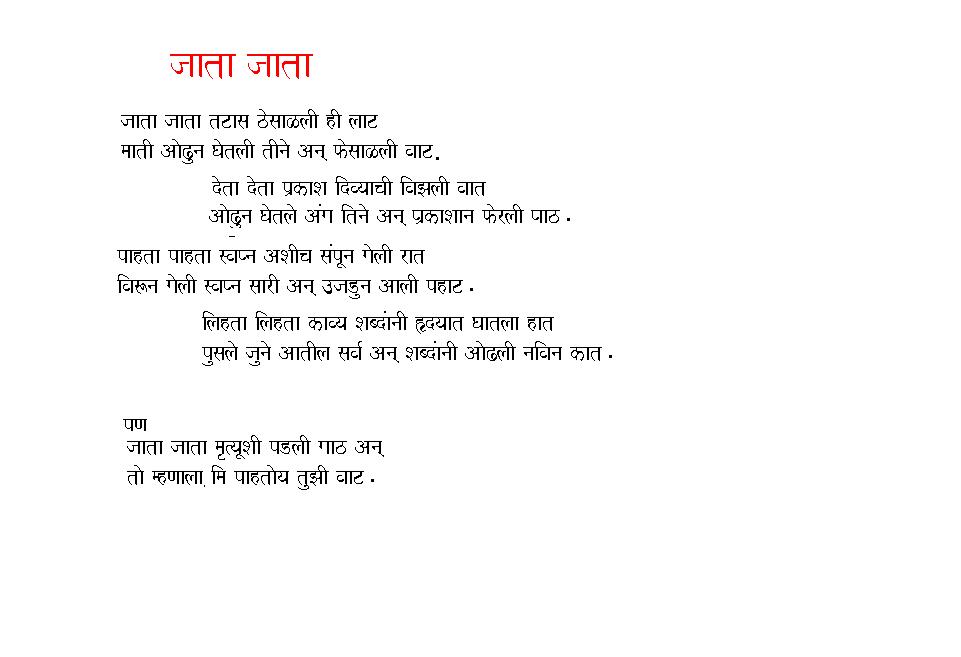 जाता जाता
जाता जाता तटास ठेसाळली ही लाट
माती ओढुन घेतली तीने अन् फेसाळली वाट.
देता देता प्रकाश दिव्याची विझली वात
ओढुन घेतले अंग तिने अन् प्रकाशान फेरली पाठ .
पाहता पाहता स्वप्न अशीच संपून गेली रात
विरून गेली स्वप्न सारी अन् उजडुन आली पहाट .
लिहता लिहता काव्य शब्दांनी हृदयात घातला हात
पुसले जुने आतील सर्व अन् शब्दांनी ओढली नविन कात .
पण
जाता जाता मृत्यूशी पडली गाठ अन्
तो म्हणाला मि पाहतोय तुझी वाट .